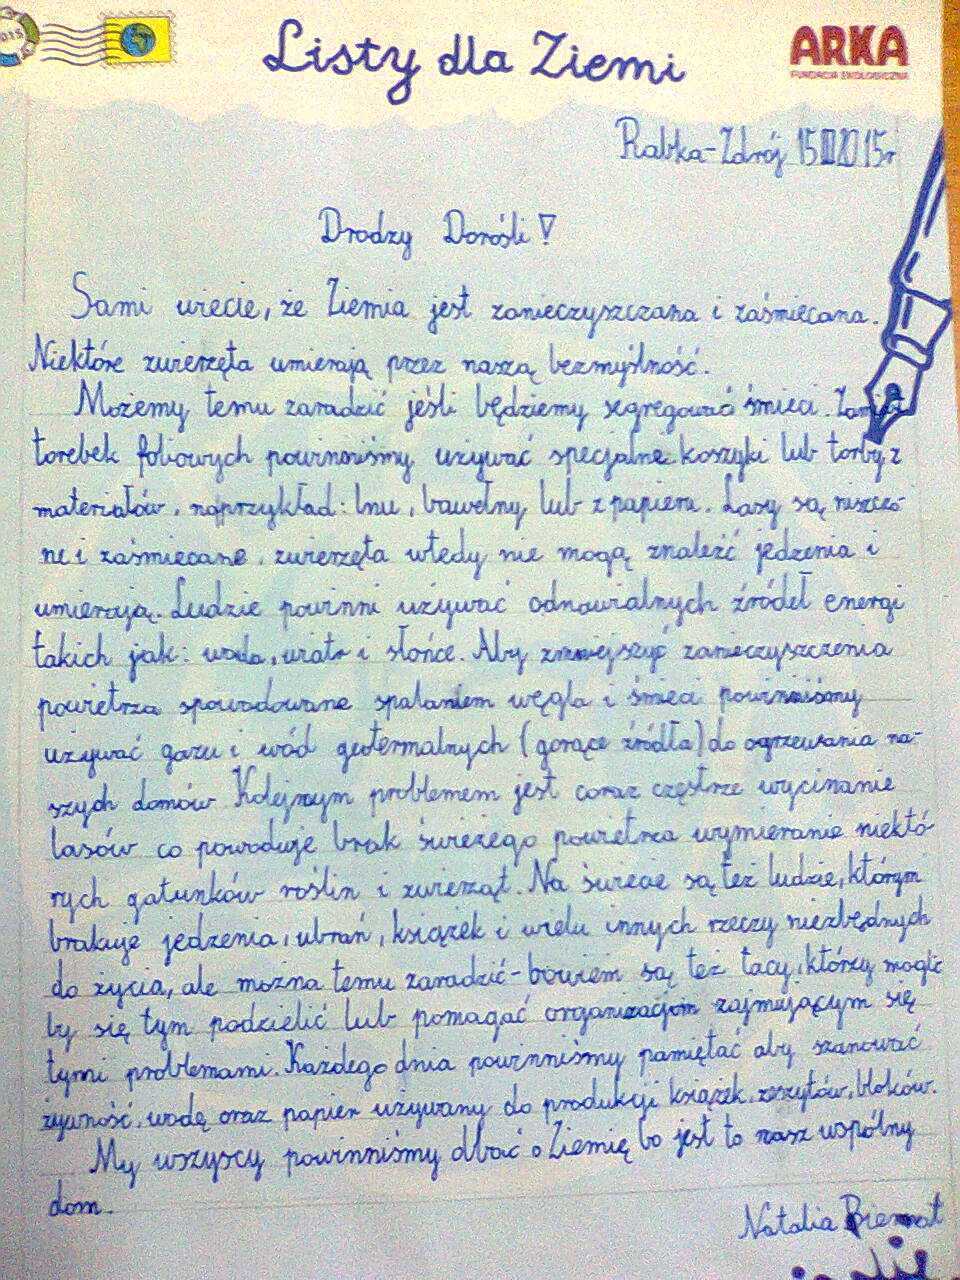 2015
Listy dla Ziemi
ARKA
FUNDACJA EKOLOGICZNA
Rabka-Zdrój 15III2015r
Drodzy Dorośli!
Sami wiecie, że Ziemia jest zanieczyszczana i zaśmiecana.
Niektóre zwierzęta umierają przez naszą bezmyślność.
Możemy temu zaradzić jeśli będziemy segregować śmieci. Zamiast
torebek foliowych powinniśmy używać specjalne koszyki lub torby z
materiałów, naprzykład: lnu, bawełny lub z papieru. Lasy są niszczo-
ne i zaśmiecane, zwierzęta wtedy nie mogą znaleźć jedzenia i
umierają. Ludzie powinni używać odnawialnych źródeł energi
takich jak: woda, wiatr i słońce. Aby zmniejszyć zanieczyszczenia
powietrza spowodowane spalaniem węgla i śmieci powinniśmy
używać gazu i wód geotermalnych (gorące źródła) do ogrzewania na-
szych domów. Kolejnym problemem jest coraz częstrze wycinanie
lasów co powoduje brak świeżego powietrza wymieranie niektó-
rych gatunków roślin i zwierząt. Na świecie są też ludzie, którym
brakuje jedzenia, ubrań, książek i wielu innych rzeczy niezbędnych
do życia, ale można temu zaradzić-bowiem są też tacy, którzy mogli
by się tym podzielić lub pomagać organizacjom zajmującym się
tymi problemami. Każdego dnia powinniśmy pamiętać aby szanować
żywność, wodę oraz papier używany do produkcji książek, zeszytów, bloków.
My wszyscy powinniśmy dbać o Ziemię bo jest to nasz wspólny
dom.
Natalia Biernat